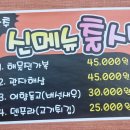 신메뉴 출시
1. 해물전가복 45.000원
2. 관자해삼 45.000원
3. 어향동고(버섯새우) 30.000원
4. 덴푸라(고기튀김) 25.000원